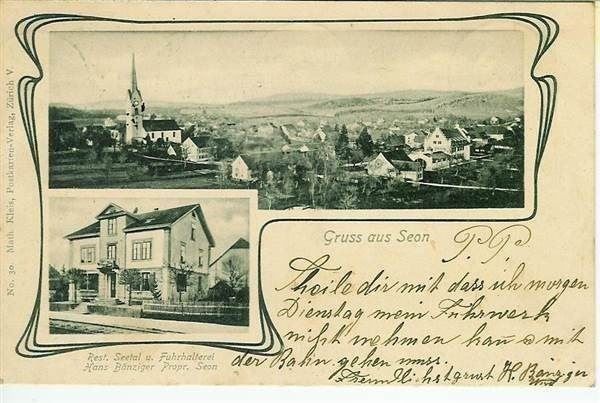 No. 30 Math. Kleis, Postkarten-Verlag, Zürich V
Gruss aus Seon
P. P.
Theile dir mit dass ich morgen
Dienstag mein Fuhrwerk
nicht nehmen kann & mit
der Bahn gehen muss.
Freundlichst grüst H. Bänziger
Rest. Seetal u. Fuhrhalterei
Hans Bänziger Propr. Seon